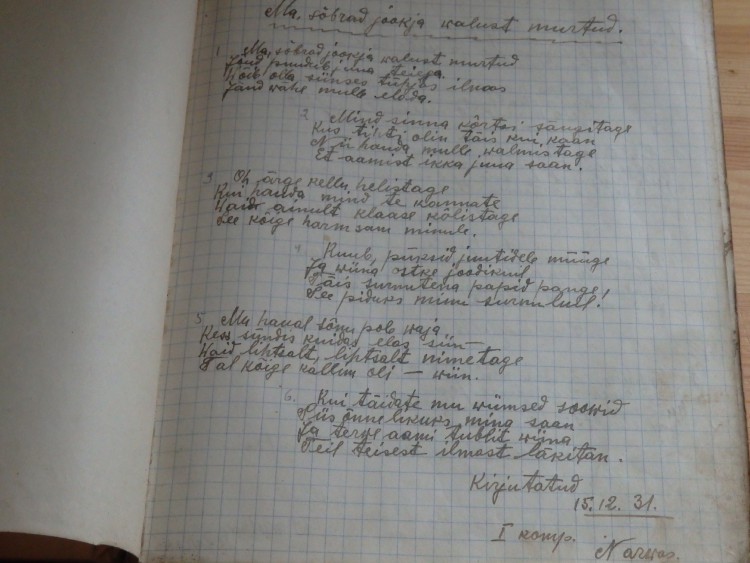 Ma, sõbrad jookja walust murtud.
1. Ma, sõbrad jookja walust murtud
juua teiega.
Võib olla sünses ilmas
Jänd wähe mulle elada.
2. Mind sinna kõrtsi sängitage
Kus tihti olin täis kui kaan
Nii hauda mulle walmistage
Et aamist ikka juua saan.
3. Oh ärge kellu helistage
Kui hauda mind te kannate
Waid ainult klaase kõlistage
See kõige harmsam minule.
4. Kuub, püksid juutidele müüge
Ja wiina ostke joodikuil
Täis surnutena papid
See piduks minu surmaluul!
5. Mu haual sõnu pole waja
Kess sündis kuidas elas siin —
Waid liptsalt, liptsalt nimetage
Tal kõige kallim oli — wiin.
6. Kui täidate mu wiimsed soowid
Siis õnnelikuks mina saan
Ja terwe aami tublit wiina
Teil teisest ilmast läkitan.
Kirjutatud
15.12.31.
I komp.
Narwas.